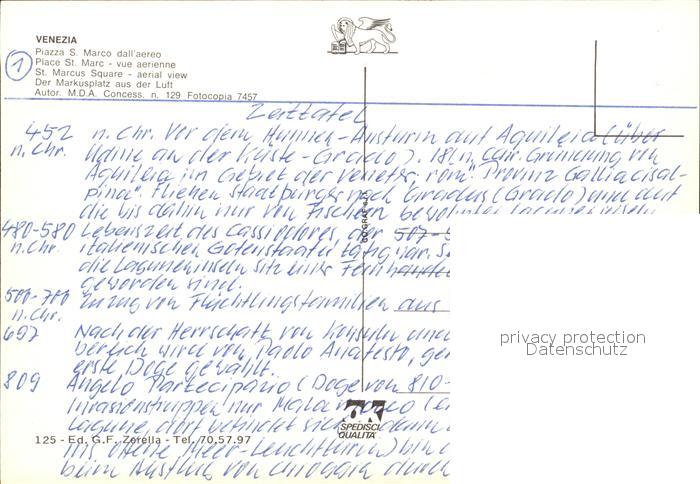 VENEZIA
Piazza S. Marco dall'aereo
Place St. Marc - vue aerienne
St. Marcus Square - aerial view
Der Markusplatz aus der Luft
Autor. M.D.A. Concess. n. 129 Fotocopia 7457
1
Zeittafel
452 n. Chr. Vor dem Hunnen-Ansturm auf Aquileia (über
n. Chr. Udine an der Küste-Grado). 181 n. Chr. Gründung von
Aquileia im Gebiet der Veneter, röm. Provinz "Gallia cisal-
pina". Fliehen Staatbürger nach Gradus (Grado) und auf
die bis dahin nur von Fischern
480-580 Lebenszeit des Cassiodores, der 507-
n. Chr. italienischen Gotenstaates tätig war.
die Laguneninseln Sitz einer
geworden sind.
500-700 Zuzug von Flüchtlingsfamilien aus
n. Chr.
697 Nach der Herrschaft von Konsuln und
bereich wird von Paolo Anafesto,
erste Doge gewählt.
809 Angelo Partecipazio (Doge von 810-
Invasionstruppen nur
Lagune, dort befindet sich
ins offene Meer-Leuchtturm) bin
beim Ausflug von Chioggia durch
DOGRAF
SPEDISCI
QUALITA'
125 - Ed. G.F. Zorella - Tel. 70.57.97
privacy protection
Datenschutz